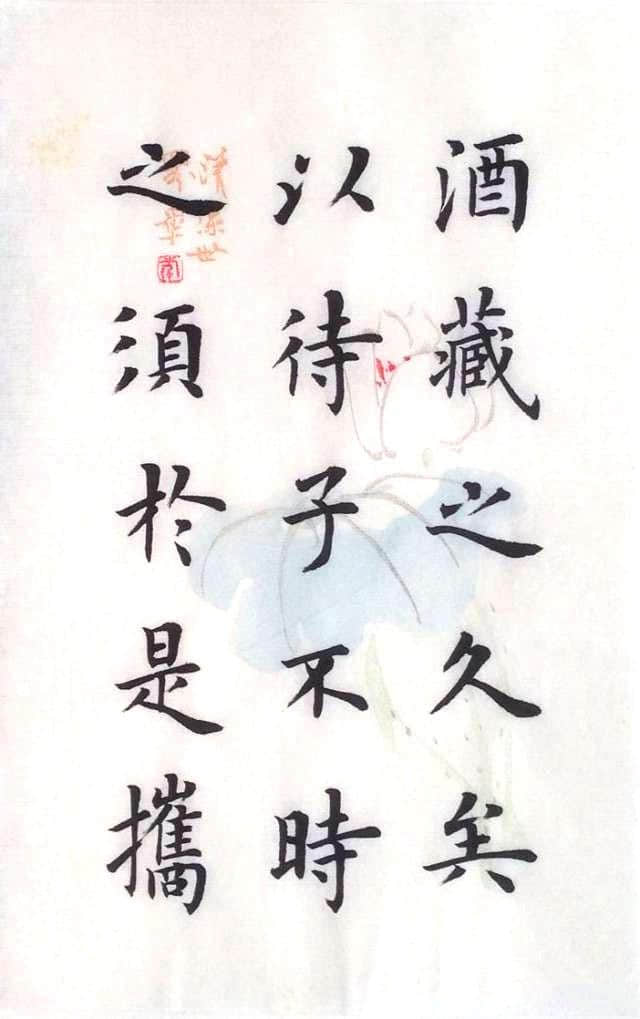 酒藏之久矣
以待子不時
之須於是攜